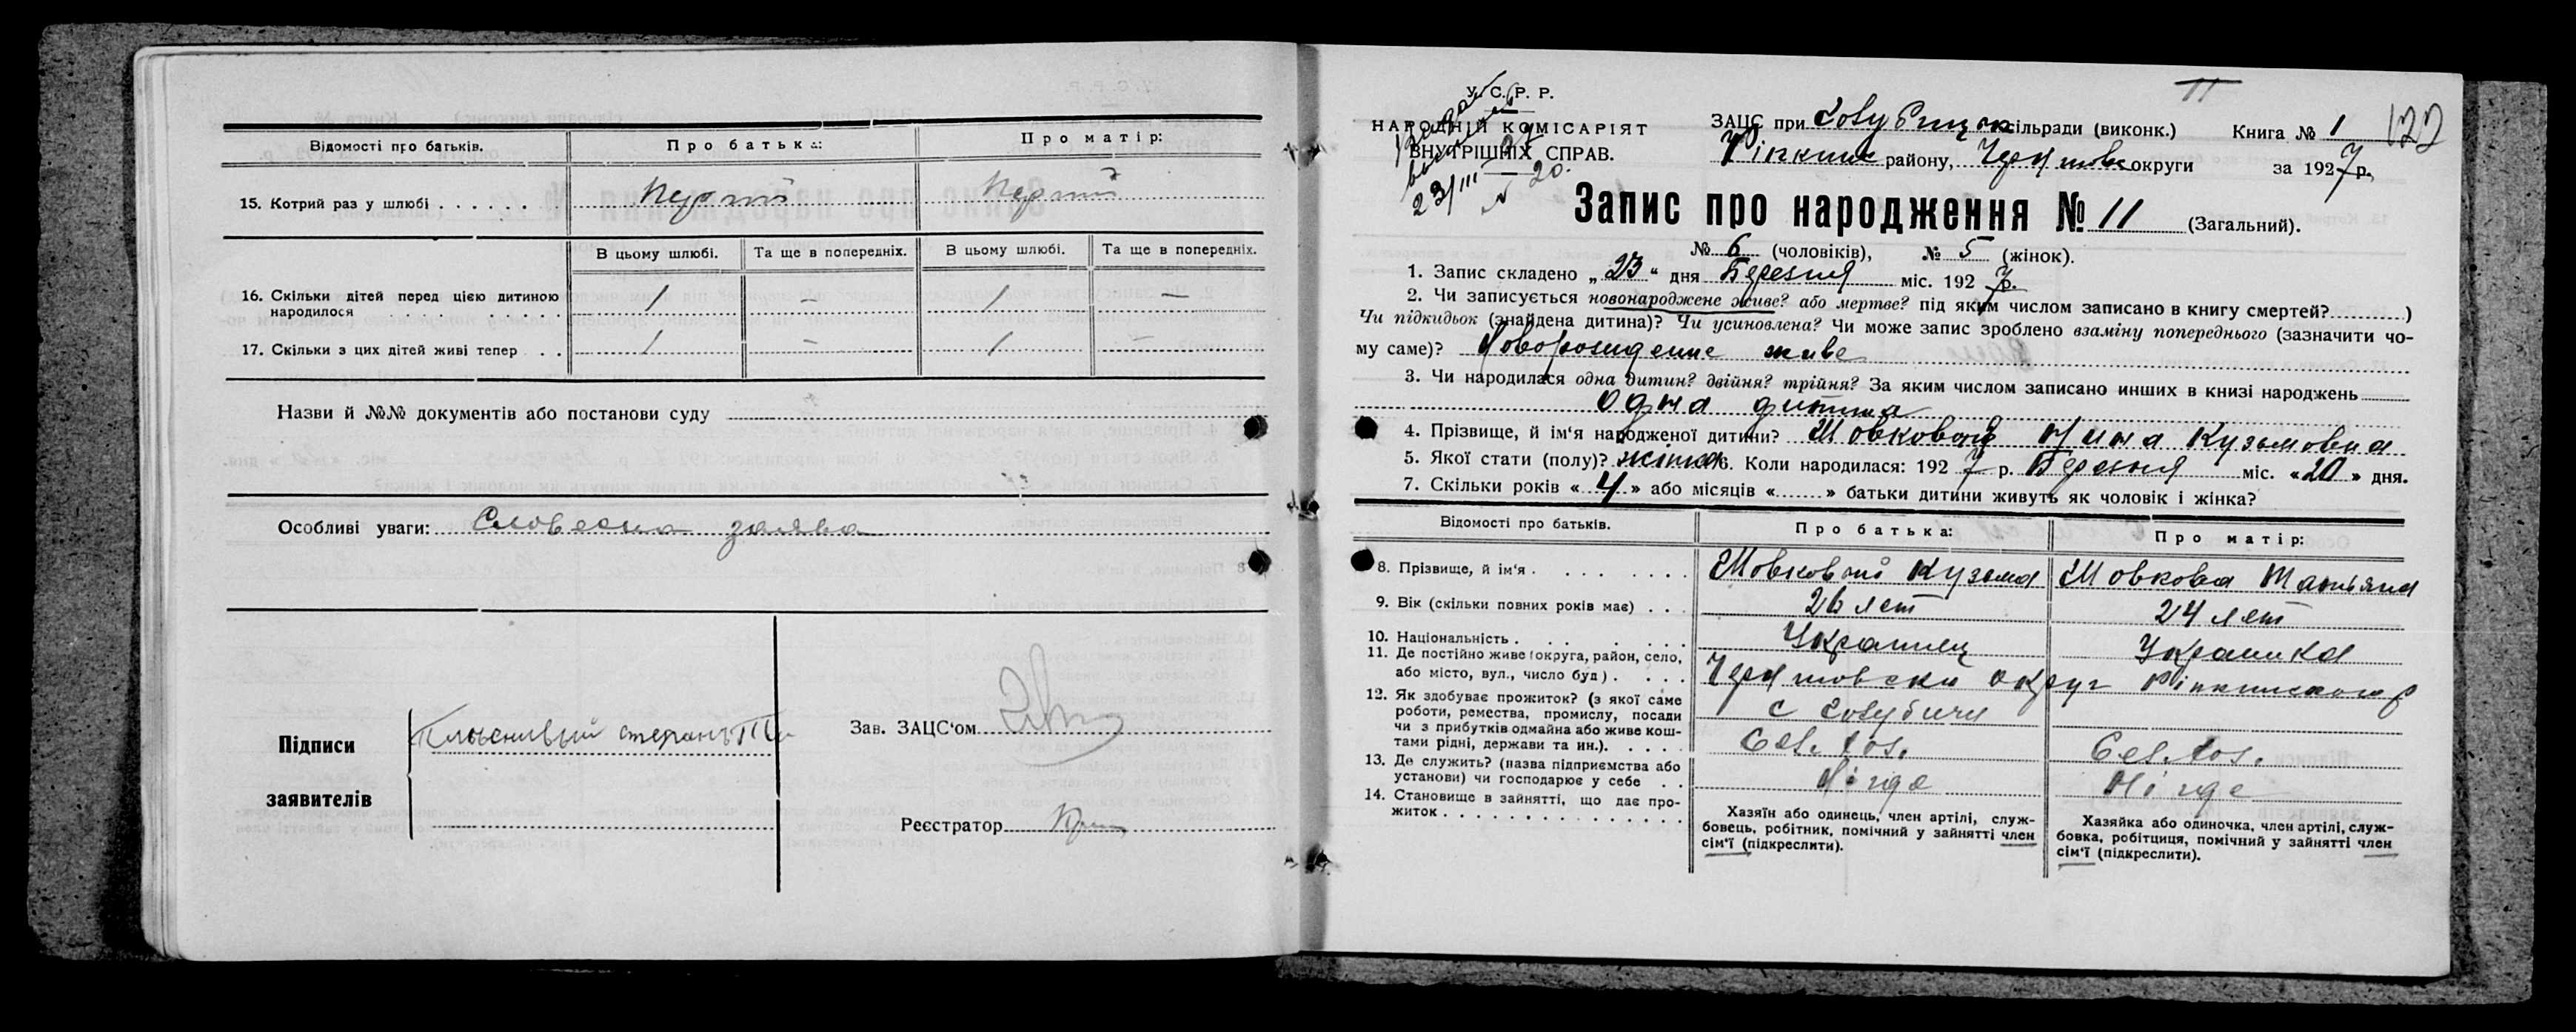 Відомості про батьків.
Про батька:
Про матір:
15. Котрий раз у шлюбі . . . . . . Перший Перший
В цьому шлюбі. Та ще в попередніх. В цьому шлюбі. Та ще в попередніх.
16. Скільки дітей перед цією дитиною
народилося . . . . . . . . 1 — 1 —
17. Скільки з цих дітей живі тепер . . 1 — 1 —
Назви й №№ документів або постанови суду
Особливі уваги: Словесна заява
Підписи
заявителів
Зав. ЗАЦС'ом
Реєстратор
У. С. Р. Р.
НАРОДНІЙ КОМІСАРІЯТ
ВНУТРІШНІХ СПРАВ.
23/III
№ 20.
11
122
ЗАЦС при сільради (виконк.) Книга № 1
району, округи за 1927 р.
Запис про народження № 11 (Загальний).
№ 6 (чоловіків), № 5 (жінок).
1. Запис складено „23“ дня Березня міс. 1927 р.
2. Чи записується новонароджене живе? або мертве? під яким числом записано в книгу смертей? )
Чи підкидьок (знайдена дитина)? Чи усиновлена? Чи може запис зроблено взаміну попереднього (зазначити чо-
му саме)? живе
3. Чи народилася одна дитин? двійня? трійня? За яким числом записано инших в книзі народжень
Одна дитина
4. Прізвище, й ім'я народженої дитини? Шовковой Нина Кузьмовна
5. Якої стати (полу)? жінка 6. Коли народилася: 1927 р. Березня міс. «20» дня.
7. Скільки років «4» або місяців « » батьки дитини живуть як чоловік і жінка?
Відомості про батьків.
Про батька:
Про матір:
8. Прізвище, й ім'я . . . . . . . Шовковий Кузьма Шовкова Татьяна
9. Вік (скільки повних років має) . . . 26 лет 24 лет
10. Національність . . . . . . . Украинец Украинка
11. Де постійно живе (округа, район, село,
або місто, вул., число буд) . . . . округ
с Голубичи
12. Як здобуває прожиток? (з якої саме
роботи, ремества, промислу, посади
чи з прибутків одмайна або живе кош-
тами рідні, держави та ин.). . . . . Сел. гос. Сел. гос.
13. Де служить? (назва підприємства або
установи) чи господарює у себе . . Нігде Нігде
14. Становище в зайнятті, що дає про-
житок . . . . . . . . . . . . . .
Хазяїн або одинець, член артілі, служ-
бовець, робітник, помічний у зайнятті член
сім'ї (підкреслити).
Хазяйка або одиночка, член артілі, служ-
бовка, робітниця, помічний у зайнятті член
сім'ї (підкреслити).